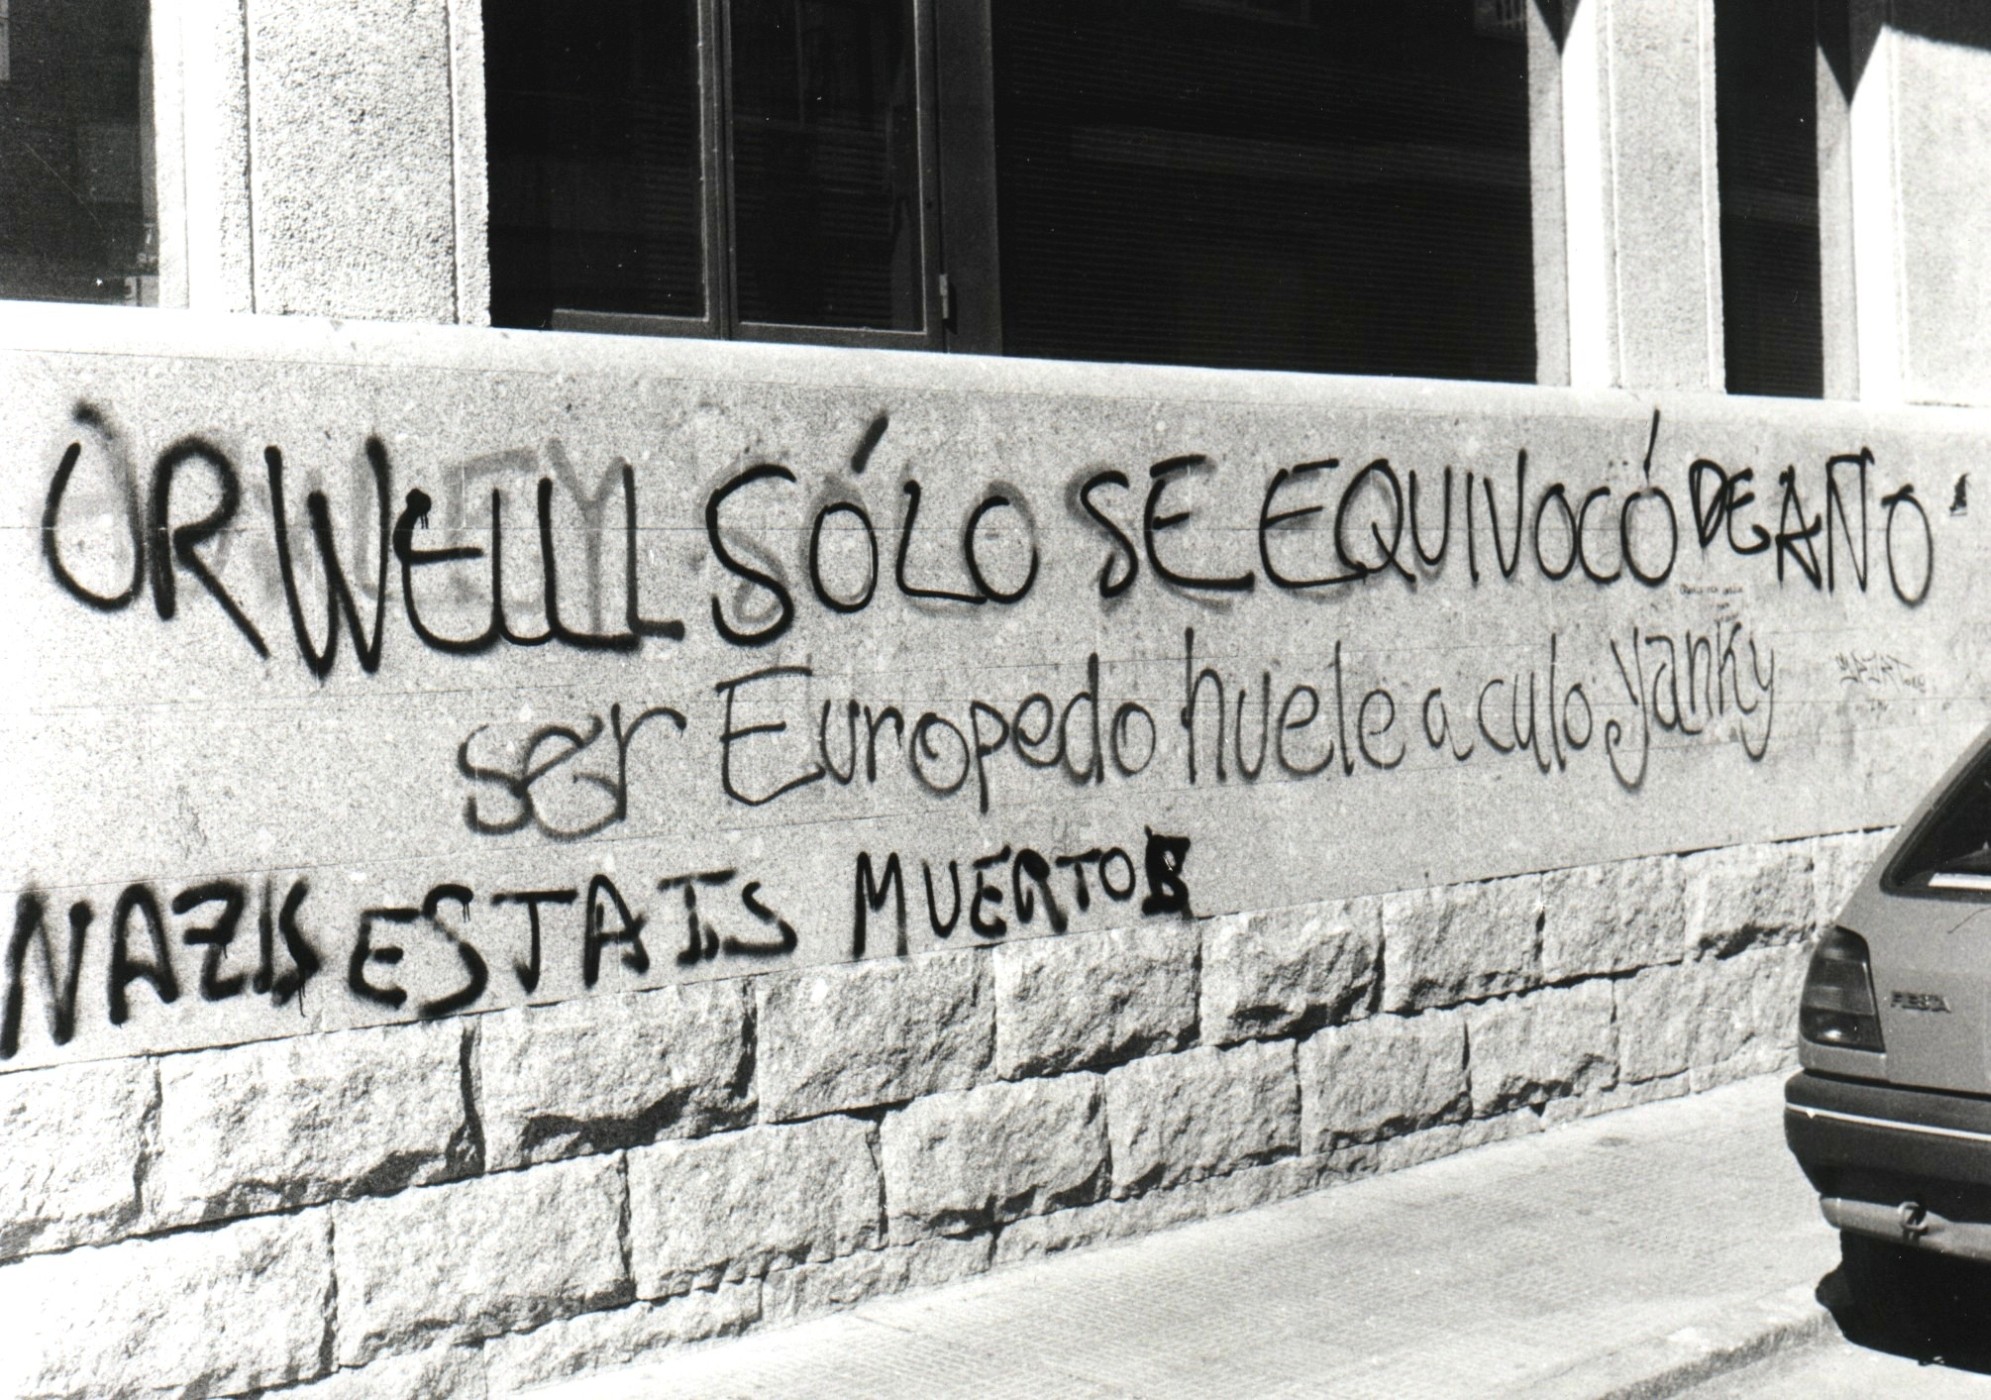 ORWELL SÓLO SE EQUIVOCÓ DE AÑO
ser Europedo huele a culo yanky
NAZIS ESTAIS MUERTOS
FIESTA